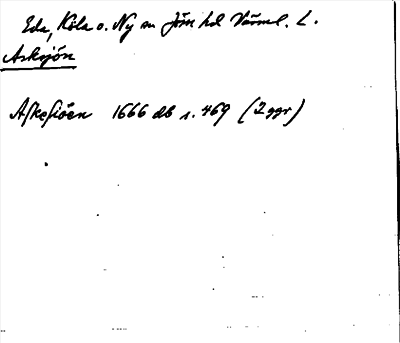 Eda, Köla o. Ny sn Jösse hd Värml. L.
Asksjön
Askesiöen 1666 db s. 469 (2 ggr)